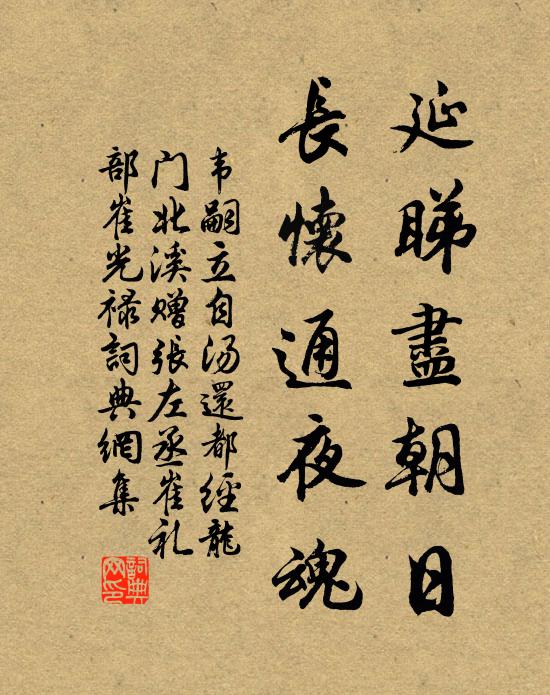 延睇盡朝日
長懷通夜魂
韦嗣立自汤還都經龍
门北溪赠張左丞崔礼
部崔光禄詞典網集
詞典網印